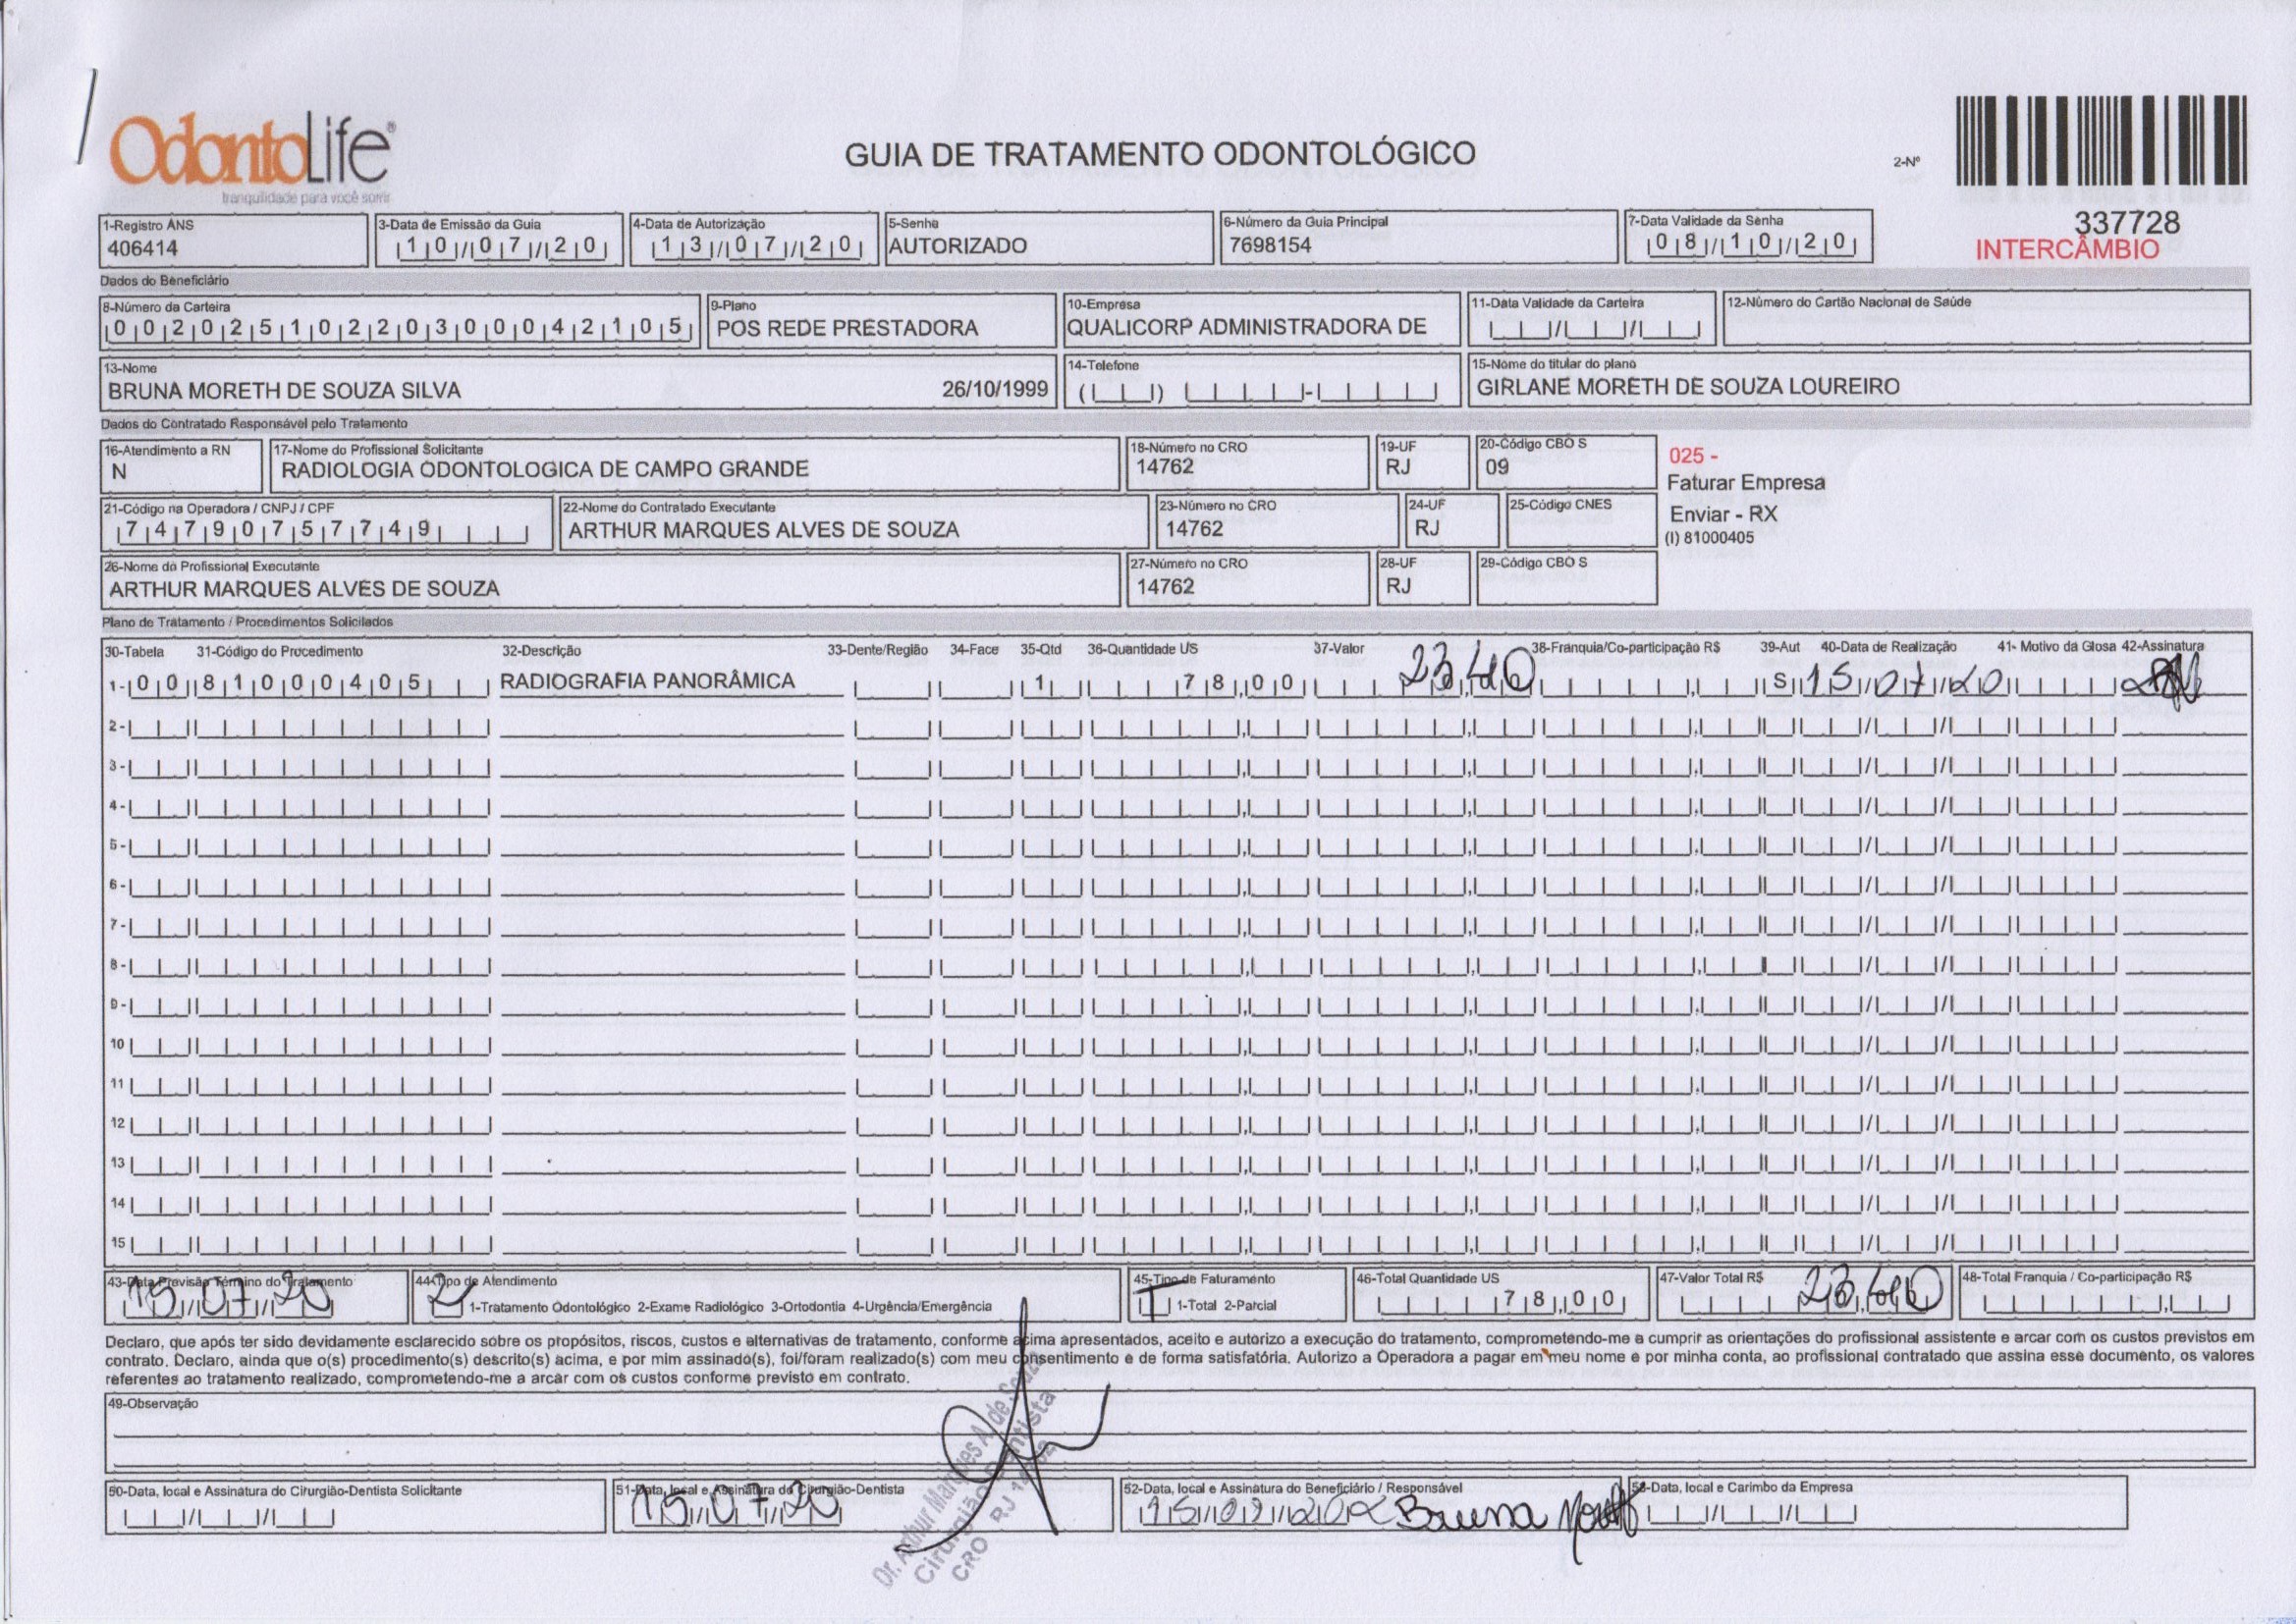 OdontoLife®
tranquilidade para você sorrir
GUIA DE TRATAMENTO ODONTOLÓGICO
2-Nº
337728
INTERCÂMBIO
1-Registro ANS
406414
3-Data de Emissão da Guia
10/07/20
4-Data de Autorização
13/07/20
5-Senha
AUTORIZADO
6-Número da Guia Principal
7698154
7-Data Validade da Senha
08/10/20
Dados do Beneficiário
8-Número da Carteira
00202510220300042105
9-Plano
POS REDE PRESTADORA
10-Empresa
QUALICORP ADMINISTRADORA DE
11-Data Validade da Carteira
12-Número do Cartão Nacional de Saúde
13-Nome
BRUNA MORETH DE SOUZA SILVA 26/10/1999
14-Telefone
15-Nome do titular do plano
GIRLANE MORETH DE SOUZA LOUREIRO
Dados do Contratado Responsável pelo Tratamento
16-Atendimento a RN
N
17-Nome do Profissional Solicitante
RADIOLOGIA ODONTOLOGICA DE CAMPO GRANDE
18-Número no CRO
14762
19-UF
RJ
20-Código CBO S
09
025 -
Faturar Empresa
Enviar - RX
(I) 81000405
21-Código na Operadora / CNPJ / CPF
74790757749
22-Nome do Contratado Executante
ARTHUR MARQUES ALVES DE SOUZA
23-Número no CRO
14762
24-UF
RJ
25-Código CNES
26-Nome do Profissional Executante
ARTHUR MARQUES ALVES DE SOUZA
27-Número no CRO
14762
28-UF
RJ
29-Código CBO S
Plano de Tratamento / Procedimentos Solicitados
30-Tabela 31-Código do Procedimento 32-Descrição 33-Dente/Região 34-Face 35-Qtd 36-Quantidade US 37-Valor 38-Franquia/Co-participação R$ 39-Aut 40-Data de Realização 41- Motivo da Glosa 42-Assinatura
1- 00 81000405 RADIOGRAFIA PANORÂMICA 1 78,00 23,40 S 15/07/20
2-
3-
4-
5-
6-
7-
8-
9-
10
11
12
13
14
15
43-Data Previsão Término do Tratamento
15/07/20
44-Tipo de Atendimento
2 1-Tratamento Odontológico 2-Exame Radiológico 3-Ortodontia 4-Urgência/Emergência
45-Tipo de Faturamento
1-Total 2-Parcial
46-Total Quantidade US
78,00
47-Valor Total R$
23,40
48-Total Franquia / Co-participação R$
Declaro, que após ter sido devidamente esclarecido sobre os propósitos, riscos, custos e alternativas de tratamento, conforme acima apresentados, aceito e autorizo a execução do tratamento, comprometendo-me a cumprir as orientações do profissional assistente e arcar com os custos previstos em
contrato. Declaro, ainda que o(s) procedimento(s) descrito(s) acima, e por mim assinado(s), foi/foram realizado(s) com meu consentimento e de forma satisfatória. Autorizo a Operadora a pagar em meu nome e por minha conta, ao profissional contratado que assina esse documento, os valores
referentes ao tratamento realizado, comprometendo-me a arcar com os custos conforme previsto em contrato.
49-Observação
50-Data, local e Assinatura do Cirurgião-Dentista Solicitante
51-Data, local e Assinatura do Cirurgião-Dentista
15/07/20
Dr. Arthur Marques A. de Souza
Cirurgião Dentista
CRO RJ 14762
52-Data, local e Assinatura do Beneficiário / Responsável
Bruna
53-Data, local e Carimbo da Empresa